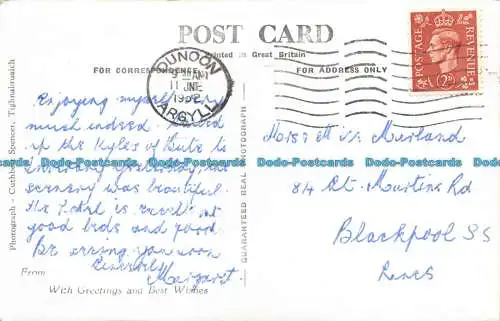 POST CARD
Printed in Great Britain
FOR CORRESPONDENCE
FOR ADDRESS ONLY
DUNOON
9 – AM
11 JNE
1952
ARGYLL
POSTAGE
REVENUE
2D
Enjoying myself very
much indeed.
up the Kyles of Bute to
yesterday, the
scenery was beautiful.
The Hotel is excellent
good beds and food.
Be seeing you soon
Sincerely
Margaret
Mr & Mrs
84 St. Martins Rd
Blackpool SS
Lancs
From
With Greetings and Best Wishes
Photograph - Cuthbert Spencer, Tighnabruaich
GUARANTEED REAL PHOTOGRAPH
Dodo-Postcards Dodo-Postcards Dodo-Postcards Dodo-Postcards Dodo-Postcards